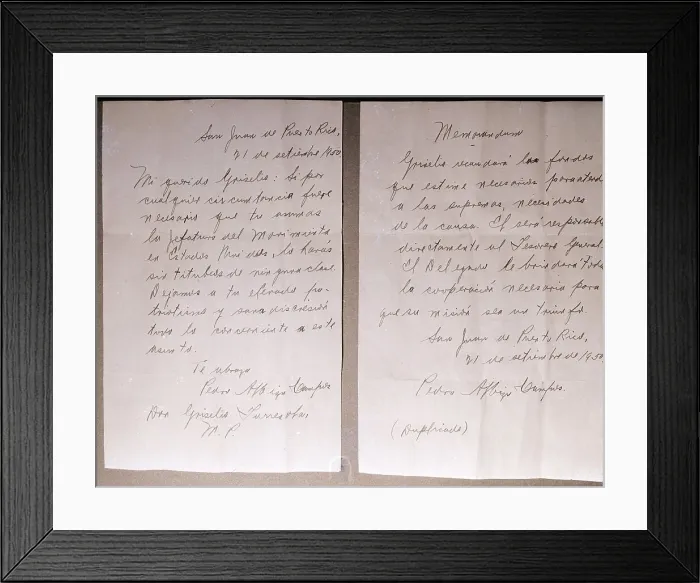 San Juan de Puerto Rico,
21 de setiembre 1950
Mi querido Griselio: Si por
cualquier circunstancia fuere
necesario que tu asumas
la jefatura del Movimiento
en Estados Unidos, lo harás
sin titubeos de ninguna clase
Dejamos a tu elevado pa-
triotismo y sana discreción
todo lo concerniente a este
asunto.
Te abraza
Pedro Albizu Campos
Don Griselio Torresola,
N. P.
Memorandum
Griselio recaudará los fondos
que estime necesarios para atend
a las supremas necesidades
de la causa. El será responsable
directamente al Tesorero General.
El Delegado le brindará toda
la cooperación necesaria para
que su misión sea un triunfo.
San Juan de Puerto Rico,
21 de setiembre de 1950
Pedro Albizu Campos
(Duplicado)